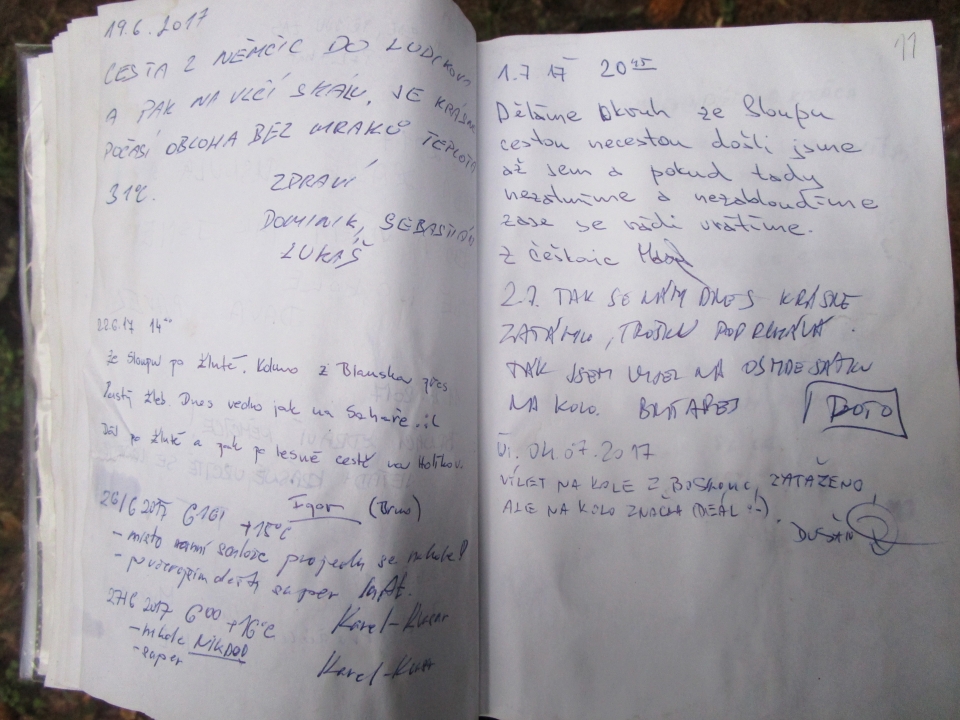 19.6.2017
CESTA Z NĚMČIC DO LUDÍKOVA
A PAK NA VLČÍ SKÁLU, JE KRÁSNÉ
POČASÍ OBLOHA BEZ MRAKŮ TEPLOTA
31°C.
ZDRAVÍ
DOMINIK, SEBASTIÁN
LUKÁŠ
22.6.17 14°°
Ze Sloupu po žluté. Kolmo z Blanska přes
Pustý žleb. Dnes vedro jak na Sahaře :(
Dál po žluté a pak po lesní cestě na Holíkov.
Igor (Brno)
26/6 2017 6161 +15°C
- místo ranní projedu se nekole!
- po deště super
27/6 2017 6°° +16°C
Karel
- nikde NIKDO
- super
Karel
11
1.7 17 20 45
Děláme okruh ze Sloupu
cestou necestou došli jsme
až sem a pokud tady
nezahyneme a nezabloudíme
zase se rádi vrátíme.
Z Češkovic
2.7. TAK SE NÁM DNES KRÁSNE
ZATÁHLO, TROŠKU POPRCHÁVÁ.
TAK JSEM VYJEL NA OSMDESÁTKU
NA KOLO.
DOTO
ÚT. 04.07.2017
VÝLET NA KOLE Z BOSKOVIC, ZATAŽENO,
ALE NA KOLO ZNAČNÁ IDEÁL :-).
DUŠAN